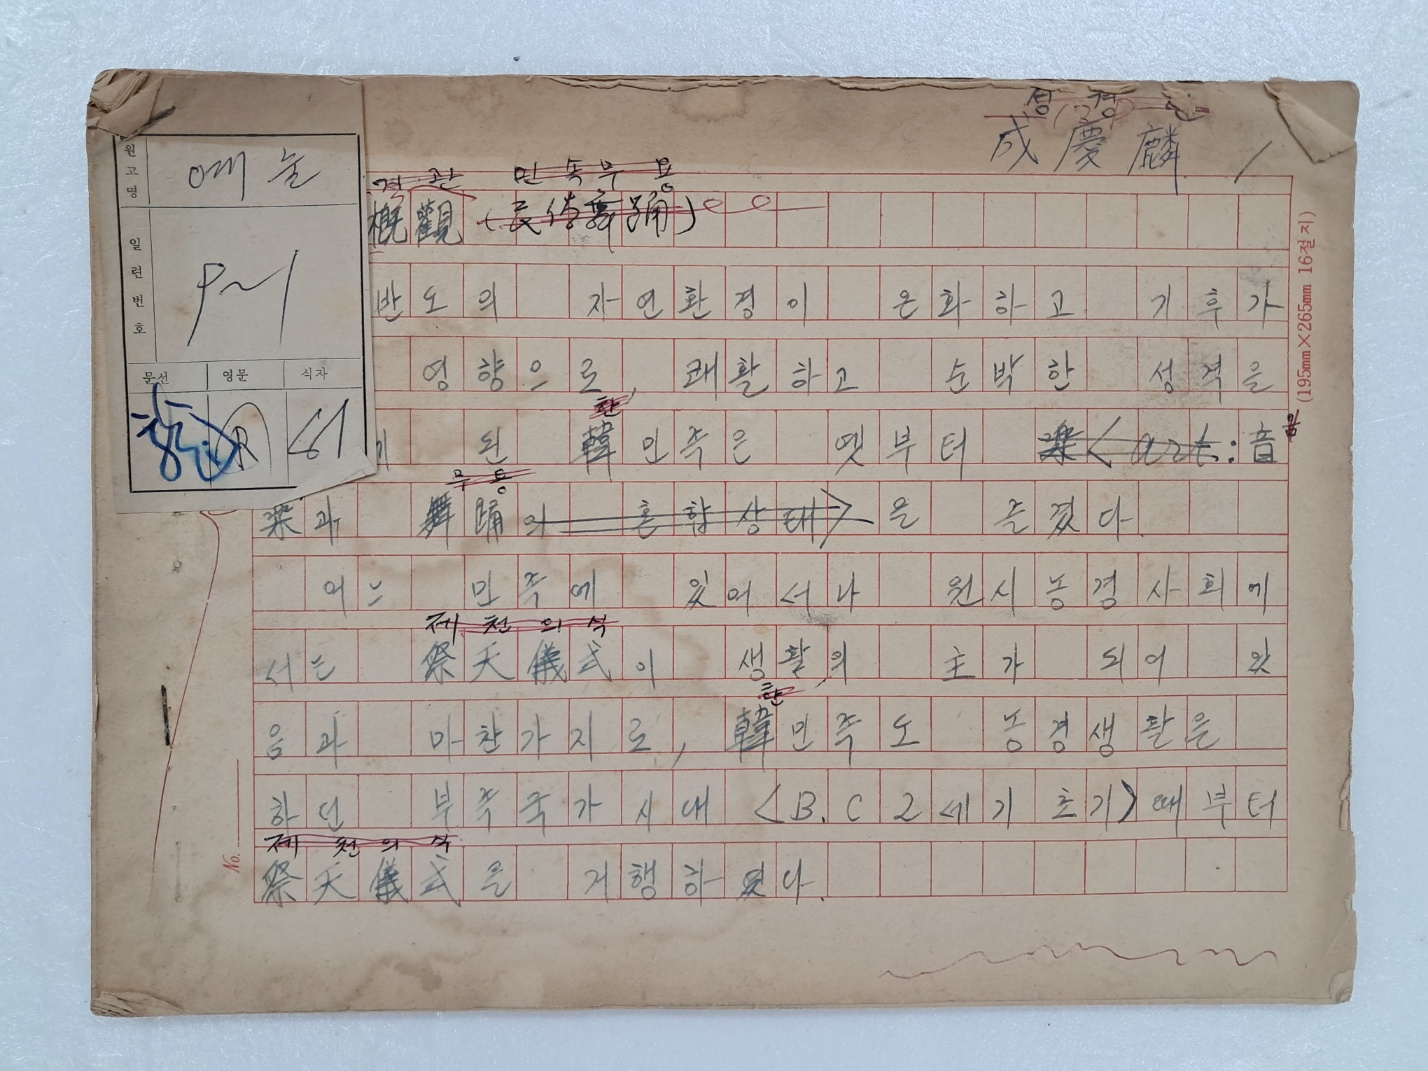 성경린
成慶麟
원고명 예능
일련번호 9~1
문선 영문 식자
61
개관 민속무용
概觀 (民俗舞踊)
반도의 자연환경이 온화하고 기후가
영향으로, 쾌활하고 순박한 성격을
한
된 韓민족은 옛부터 樂<art:音
무용
樂과 舞踊의 혼합상태>을 즐겼다.
어느 민족에 있어서나 원시농경사회에
제천의식
서는 祭天儀式이 생활의 主가 되어 있
한
음과 마찬가지로, 韓민족도 농경생활을
하던 부족국가시대 <B.C 2세기 초기>때부터
제천의식
祭天儀式을 거행하였다.
(195mm×265mm 16절지)
No.